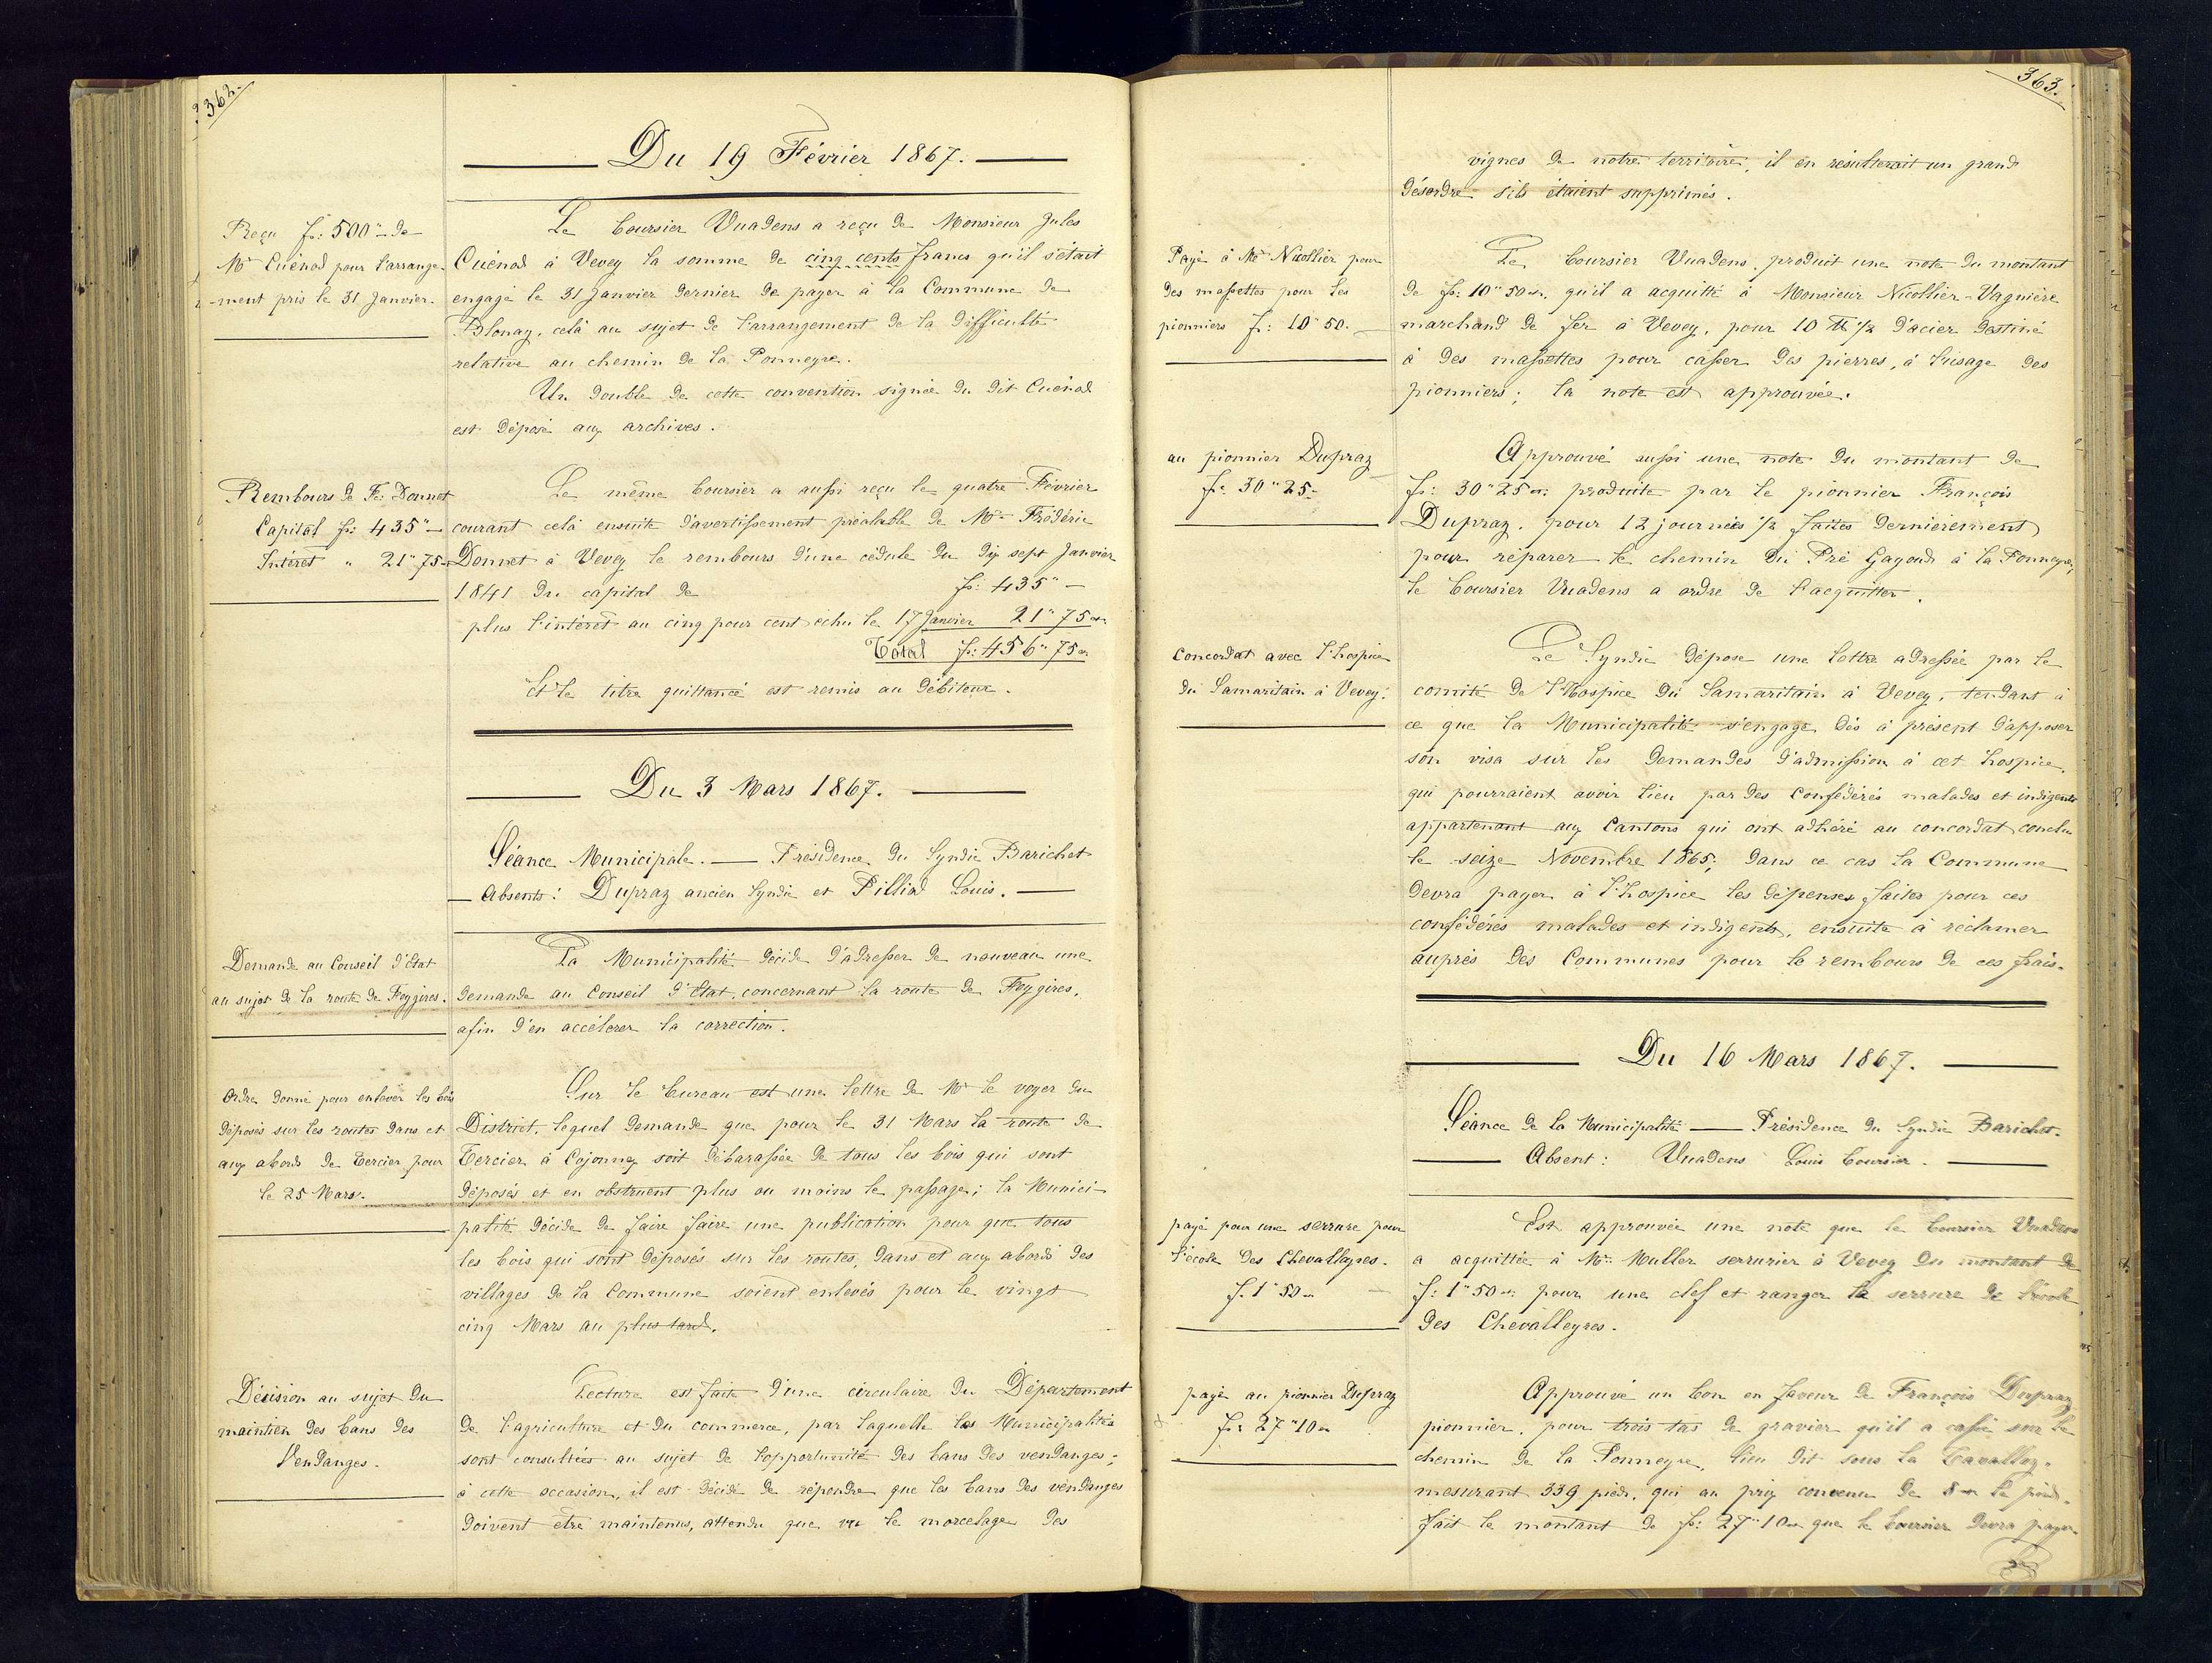 362.
Du 19 Février 1867.
Reçu f: 500" - de
Mr Cuénod pour l'arrange-
-ment pris le 31 Janvier.
Le boursier Vuadens a reçu de Monsieur Jules
Cuénod à Vevey la somme de cinq cents francs qu'il s'était
engagé le 31 Janvier dernier de payer à la Commune de
Blonay, celà au sujet de l'arrangement de la difficulté
relative au chemin de la Ponneyre.
Un double de cette convention signée du dit Cuénod
est déposé aux archives.
Rembours de Fc: Donnet
Capital fr: 435" -
Intérêt " 21" 75
Le même boursier a aussi reçu le quatre Février
courant celà ensuite d'avertissement préalable de Mr Frédéric
Donnet à Vevey le rembours d'une cédule du dix sept Janvier
1841 du capital de fr: 435" -
plus l'intérêt au cinq pour cent échu le 17 Janvier 21" 75 cs
Total fr: 456" 75 cs
Et le titre quittancé est remis au débiteur.
Du 3 Mars 1867.
Séance Municipale. — Présidence du Syndic Barichet
— Absents: Dupraz ancien Syndic et Pilliod Louis. —
Demande au Conseil d'Etat
au sujet de la route de Feygires.
La Municipalité décide d'adresser de nouveau une
demande au Conseil d'Etat, concernant la route de Feygires,
afin d'en accélerer la correction.
Ordre donné pour enlever les bois
déposés sur les routes dans et
aux abords de Tercier pour
le 25 Mars.
Sur le bureau est une lettre de Mr le voyer du
District, lequel demande que pour le 31 Mars la route de
Tercier à Cojonnex soit débarassée de tous les bois qui sont
déposés et en obstruent plus ou moins le passage; la Munici-
palité décide de faire faire une publication pour que tous
les bois qui sont déposés sur les routes, dans et aux abords des
villages de la Commune soient enlevés pour le vingt
cinq Mars au plus tard.
Décision au sujet du
maintien des bans des
Vendanges.
Lecture est faite d'une circulaire du Département
de l'agriculture et du commerce, par laquelle les Municipalités
sont consultées au sujet de l'opportunité des bans des vendanges;
à cette occasion, il est décidé de répondre que les bans des vendanges
doivent etre maintenus, attendu que vu le morcelage des
363.
vignes de notre territoire, il en résulterait un grand
désordre s'ils étaient supprimés.
Payé à Mr Nicollier pour
des massettes pour les
pionniers fr: 10" 50.
Le boursier Vuadens, produit une note du montant
de fr: 10" 50 cs, qu'il a acquitté à Monsieur Nicollier-Vagnière
marchand de fer à Vevey, pour 10 ℔ ½ d'acier destiné
à des massettes pour casser des pierres, à l'usage des
pionniers; la note est approuvée.
au pionnier Dupraz
fr. 30" 25.
Approuvé aussi une note du montant de
fr: 30" 25 cs produite par le pionnier François
Dupraz, pour 12 journées ½ faites dernièrement
pour réparer le chemin du Pré Gagoud à la Ponneyre;
le boursier Vuadens a ordre de l'acquitter.
Concordat avec l'hospice
du Samaritain à Vevey.
Le Syndic dépose une lettre adressée par le
comité de l'Hospice du Samaritain à Vevey, tendant à
ce que la Municipalité s'engage dès à présent d'apposer
son visa sur les demandes d'admission à cet hospice,
qui pourraient avoir lieu par des Confédérés malades et indigents
appartenant aux Cantons qui ont adhéré au concordat conclu
le seize Novembre 1865; dans ce cas la Commune
devra payer à l'hospice les dépenses faites pour ces
confédérés malades et indigents, ensuite à réclamer
auprès des Communes pour le rembours de ces frais.
Du 16 Mars 1867.
Séance de la Municipalité — Présidence du Syndic Barichet.
— Absent: Vuadens Louis boursier. —
payé pour une serrure pour
l'école des Chevalleyres.
f. 1" 50 cs
Est approuvée une note que le boursier Vuadens
a acquittée à Mr Muller serrurier à Vevey du montant de
f: 1" 50 cs pour une clef et ranger la serrure de l'école
des Chevalleyres.
payé au pionnier Dupraz
fr: 27" 10 cs
Approuvé un bon en faveur de François Dupraz
pionnier, pour trois tas de gravier qu'il a cassé sur le
chemin de la Ponneyre, lieu dit sous la Cavallaz.
mesurant 339 pieds, qui au prix convenu de 8 cs le pied,
fait le montant de fr: 27" 10 cs que le boursier devra payer.